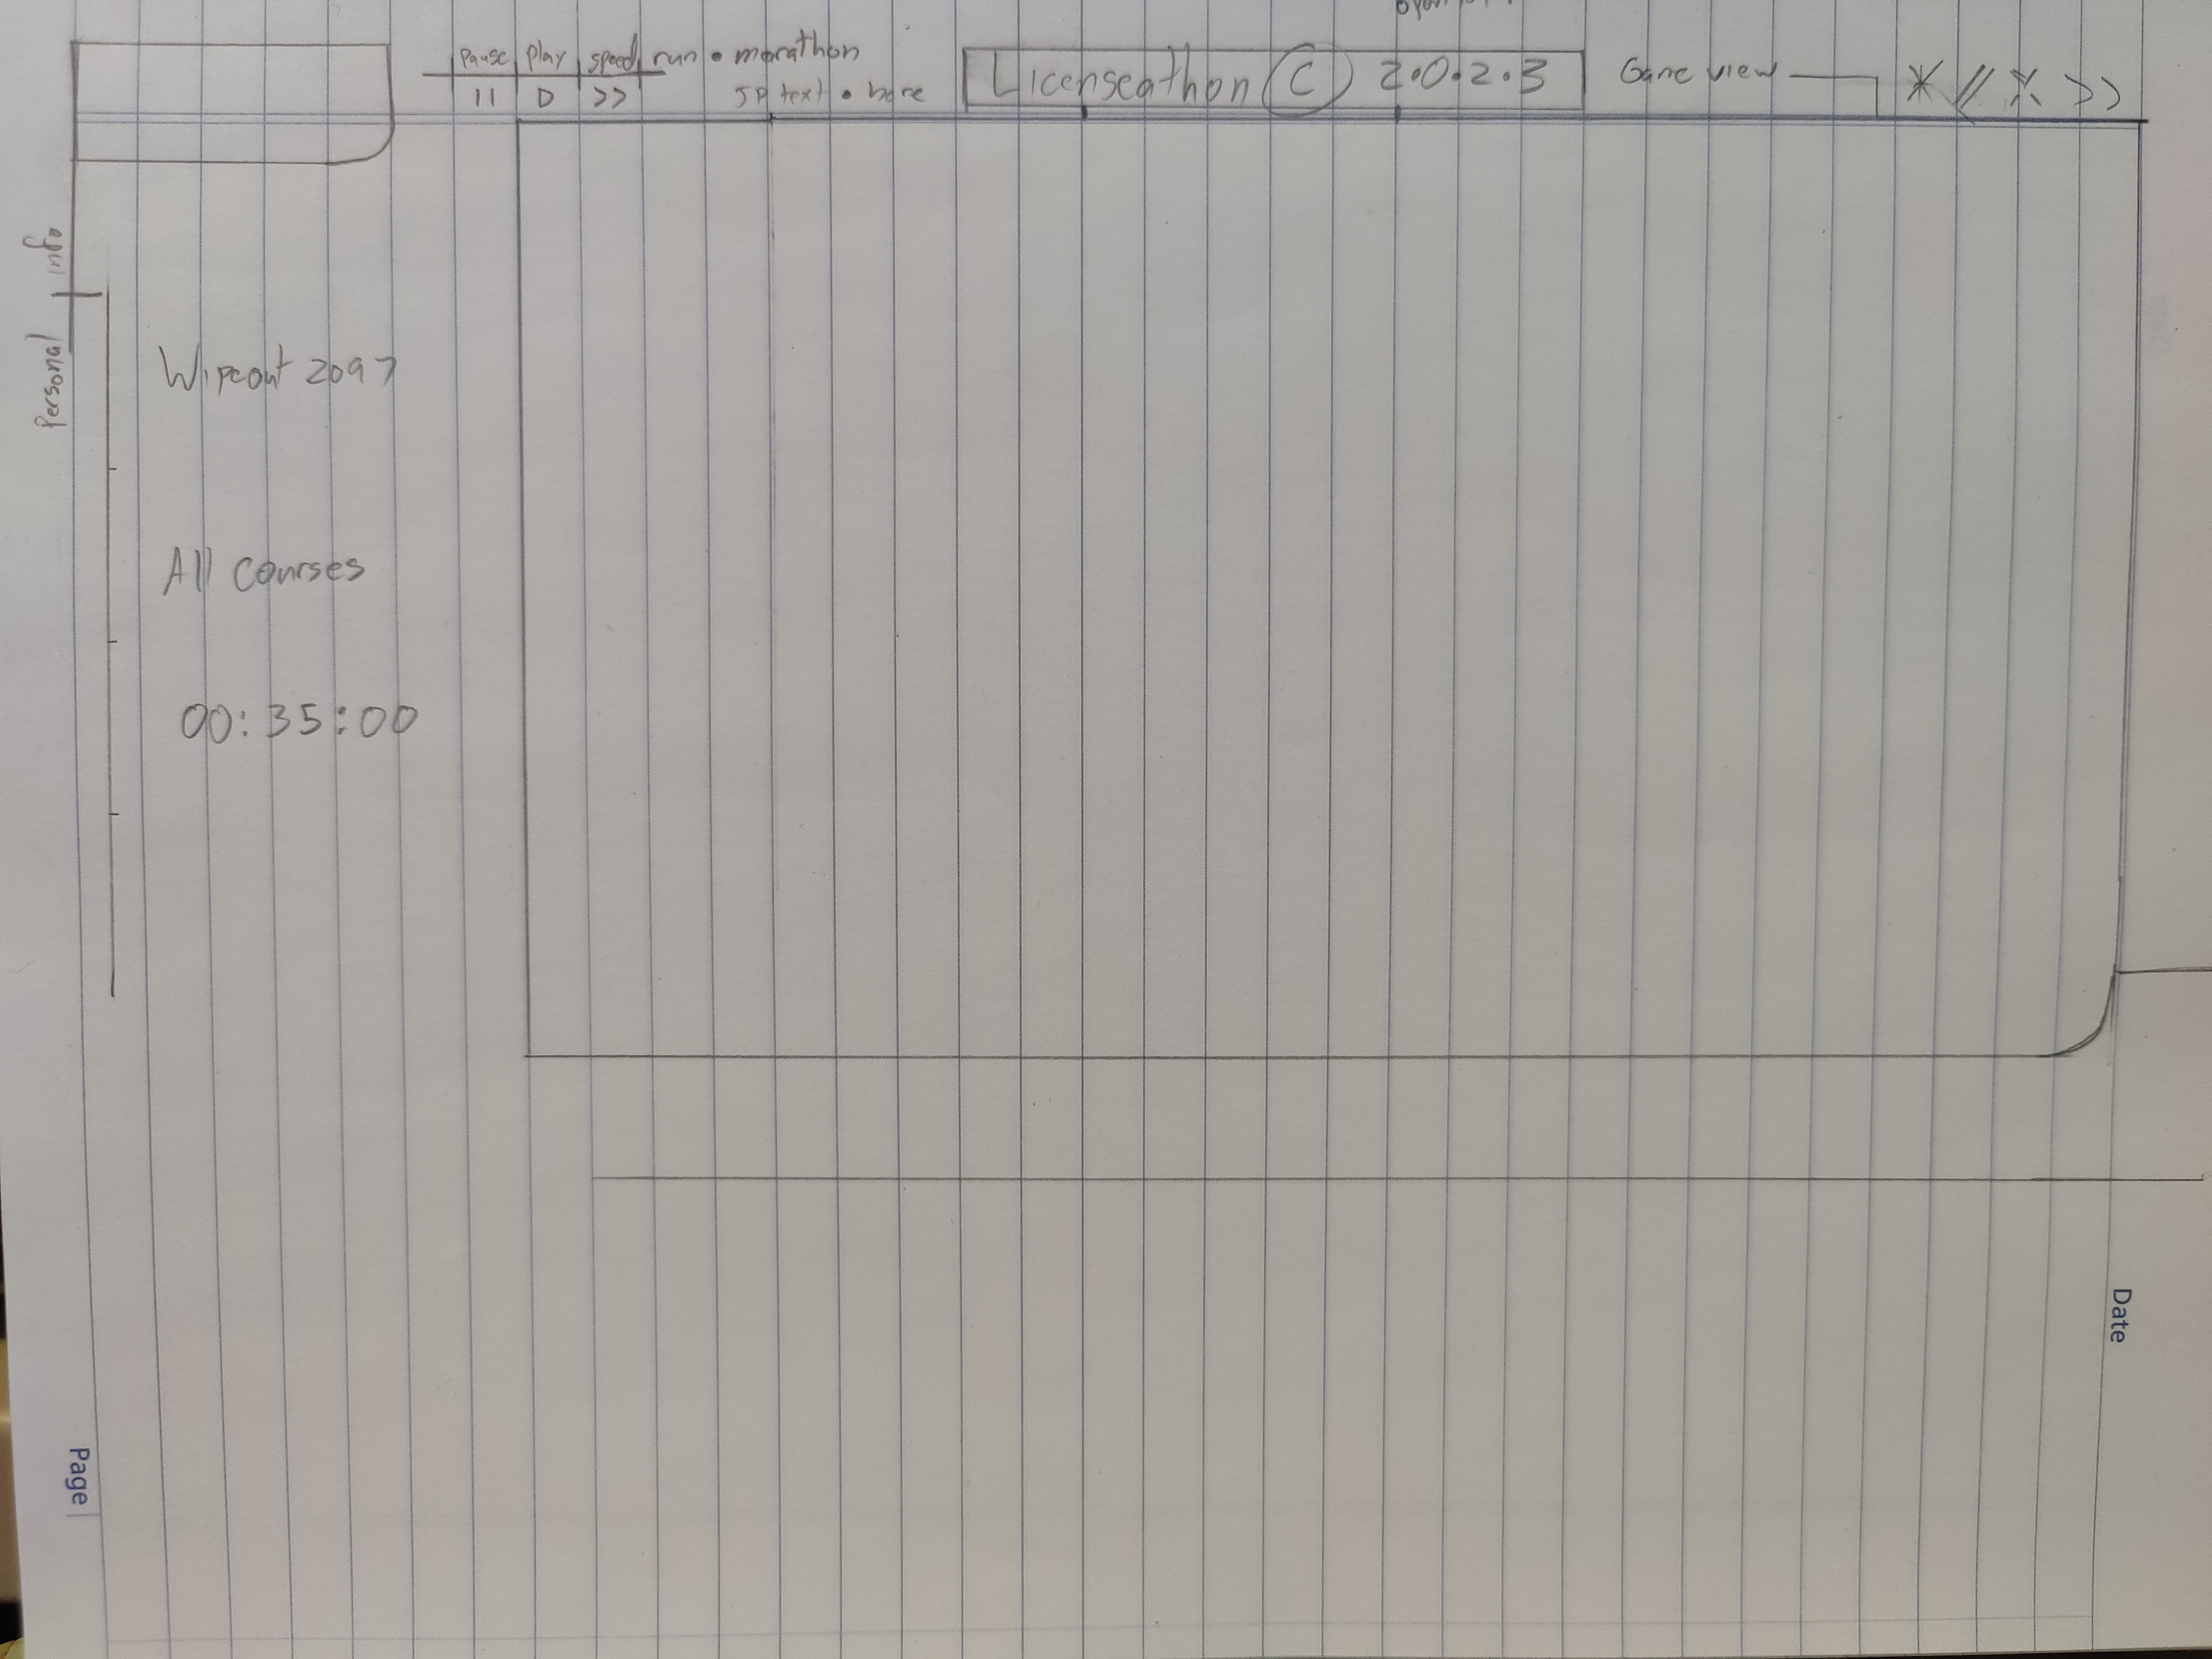 Pause play speed run • marathon
II D >> JP text • here
Licenseathon C 2.0.2.3
Game view * // >>
Personal info
Wipeout 2097
All courses
00:35:00
Date
Page